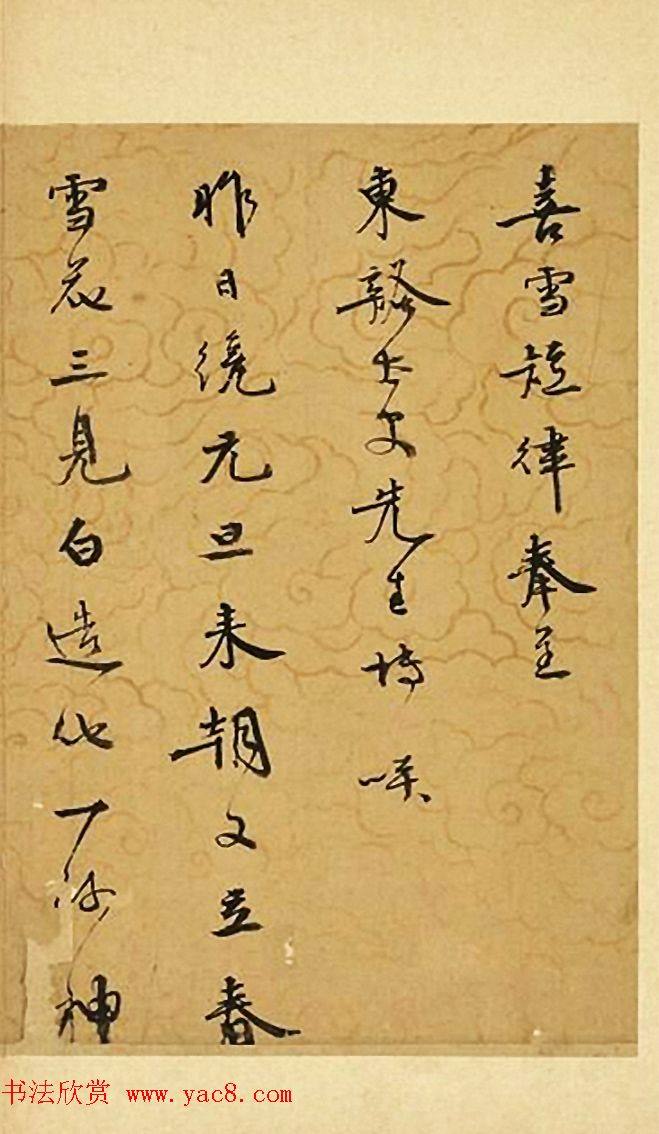 喜雪短律奉呈
東谿七丈先生博咲
昨日纔元旦来朝又立春
雪花三見白造化一何神
书法欣赏 www.yac8.com